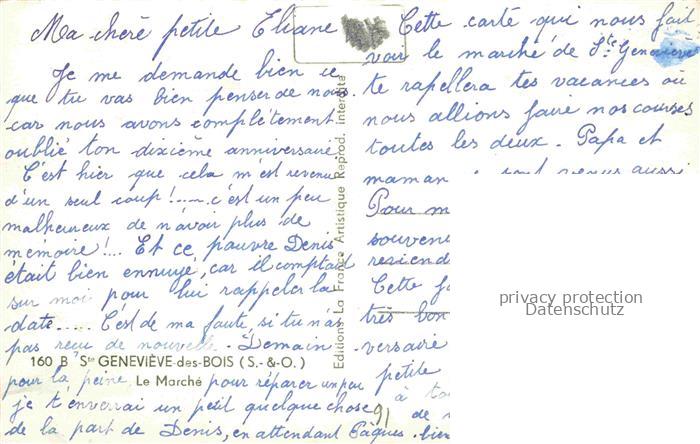 Ma chère petite Eliane
Je me demande bien ce
que tu vas bien penser de nous
car nous avons complètement
oublié ton dixième anniversaire
C'est hier que cela m'est revenu
d'un seul coup!..... c'est un peu
malheureux de n'avoir plus de
mémoire!... Et ce pauvre Denis
était bien ennuyé, car il comptait
sur moi pour lui rappeler la
date..... C'est de ma faute, si tu n'as
pas reçu de nouvelle. Demain
pour la peine, pour réparer un peu
je t'enverrai un petit quelque chose
de la part de Denis, en attendant Pâques.
160 B Ste GENEVIÈVE-des-BOIS (S.-&-O.)
Le Marché
Editions La France Artistique Reprod. interdite
Cette carte qui nous fait
voir le marché de Ste Geneviève
te rapellera tes vacances où
nous allions faire nos courses
toutes les deux. Papa et
maman sont venus aussi
Pour m
souveni
reviend
Cette
très bon
versaire
petite
à to
de
bien
91
privacy protection
Datenschutz